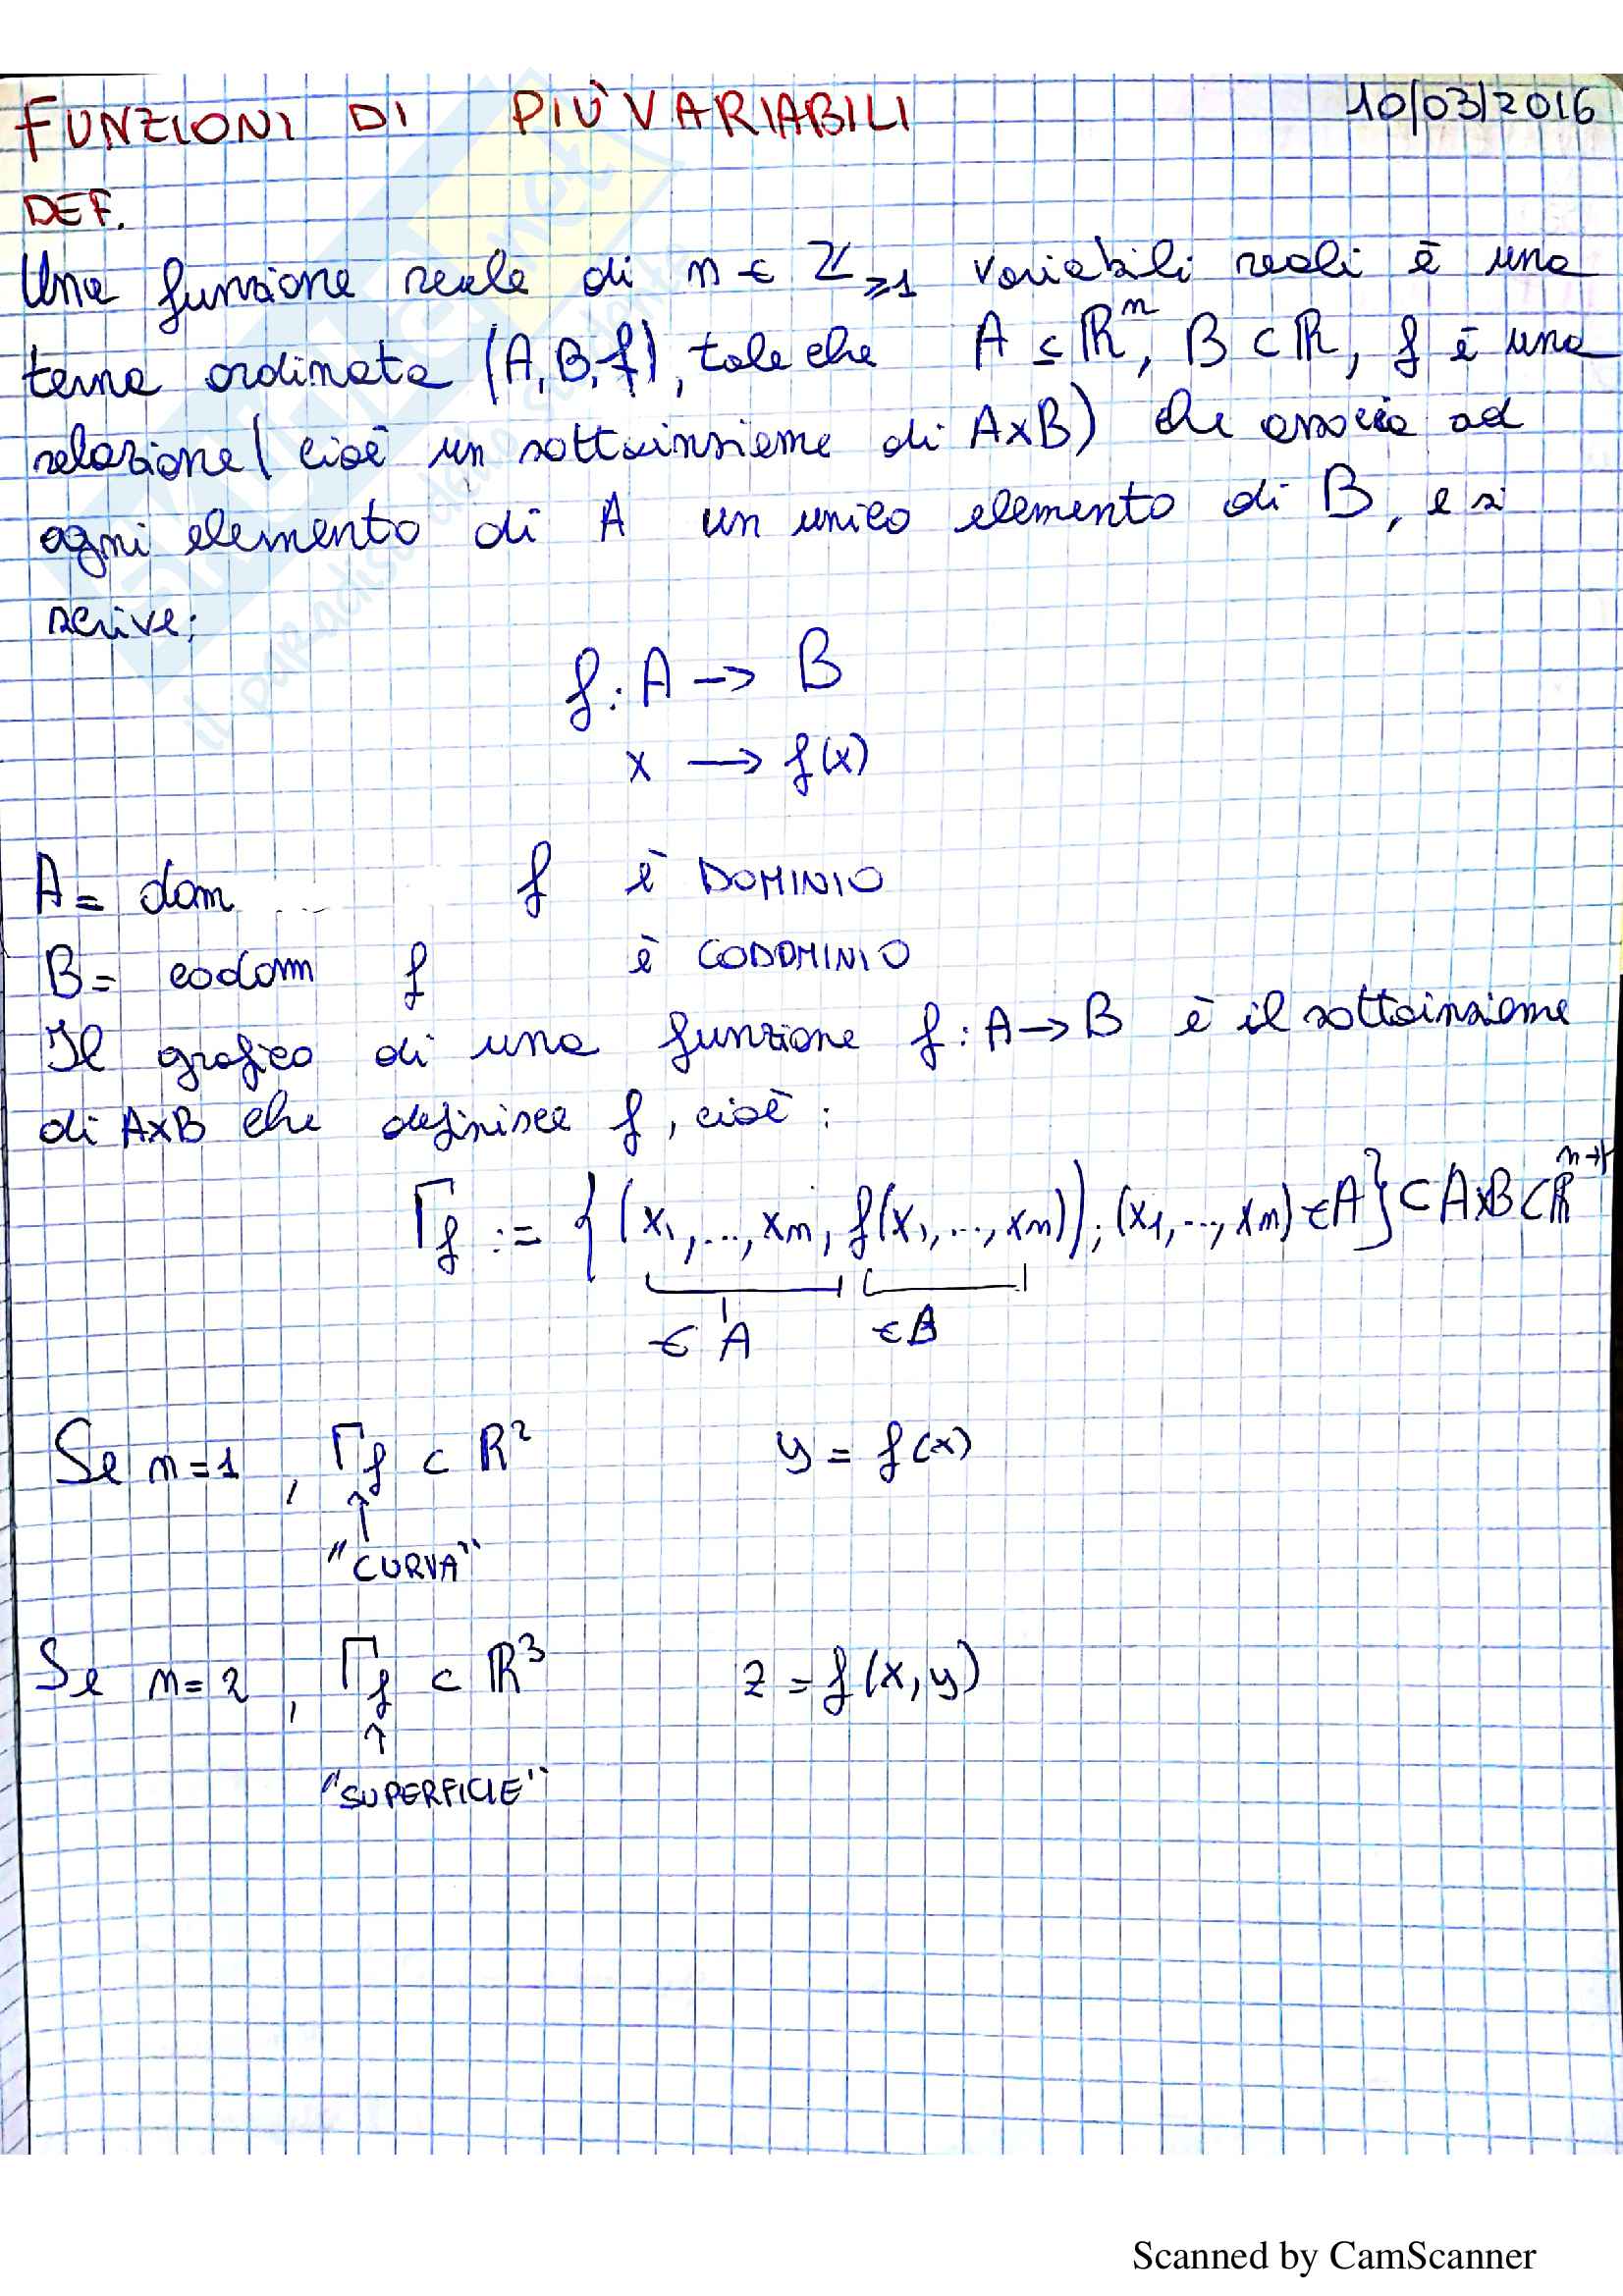 FUNZIONI DI PIÙ VARIABILI 10/03/2016
DEF.
Una funzione reale di n ∈ Z≥1 variabili reali è una
terna ordinata (A,B,f), tale che A ⊆ ℝⁿ, B ⊂ ℝ, f è una
relazione (cioè un sottoinsieme di A×B) che associa ad
ogni elemento di A un unico elemento di B, e si
scrive:
f: A → B
x → f(x)
A = dom f è DOMINIO
B = codom f è CODOMINIO
Il grafico di una funzione f: A → B è il sottoinsieme
di A×B che definisce f, cioè:
Γf := {(x1,...,xn, f(x1,...,xn)); (x1,...,xn) ∈ A} ⊂ A×B ⊂ ℝⁿ⁺¹
∈ A ∈ B
Se n=1, Γf ⊂ ℝ² y = f(x)
↑
"CURVA"
Se n=2, Γf ⊂ ℝ³ z = f(x,y)
↑
"SUPERFICIE"
Scanned by CamScanner